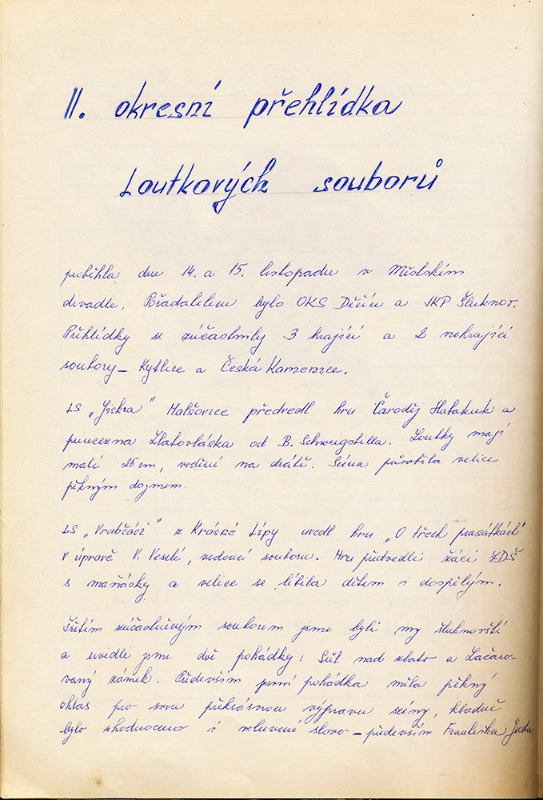 II. okresní přehlídka
Loutkových souborů
proběhla dne 14. a 15. listopadu v Městském
divadle. Pořadatelem bylo OKS Děčín a JKP Šluknov.
Přehlídky se zúčastnily 3 hrající a 2 nehrající
soubory – Kytlice a Česká Kamenice.
LS „Jiskra" Malšovice předvedl hru Čaroděj Habakuk a
princezna Zlatovláska od B. Schweigstilla. Loutky mají
malé 25 cm, vedení na drátě. Scéna působila velice
pěkným dojmem.
LS „Vrabčáci" z Krásné Lípy uvedl hru „O třech prasátkách"
v úpravě V. Veselé, vedoucí souboru. Hru předvedli žáci ZDŠ
s maňásky a velice se líbila dětem i dospělým.
Třetím zúčastněným souborem jsme byli my šluknovští
a uvedli jsme dvě pohádky: Sůl nad zlato a Začaro-
vaný zámek. Především první pohádka měla pěkný
ohlas pro svou překrásnou výpravu scény, kladně
bylo zhodnoceno i mluvené slovo – především Františka